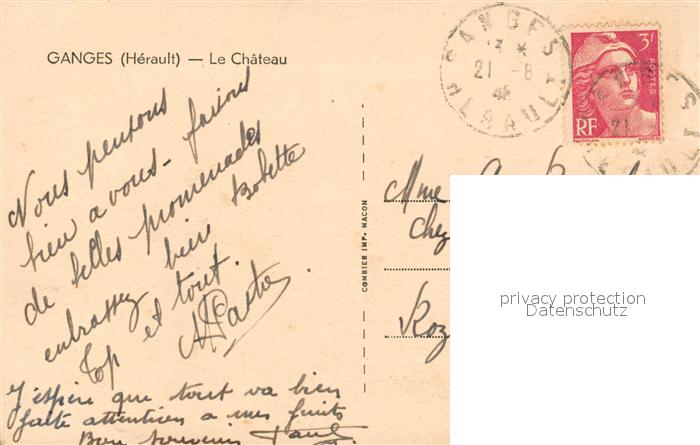 GANGES (Hérault) — Le Château
Nous pensons
bien a vous - faisons
de belles promenades
embrassez bien Bobette
Top et tout.
J'espère que tout va bien
faite attention a mes fruits
Bon souvenir Paul
COMBIER IMP. MACON
GANGES
13 *
21 -8
HERAULT
3F
POSTES
RF
21
Mme
chez
Roz
privacy protection
Datenschutz